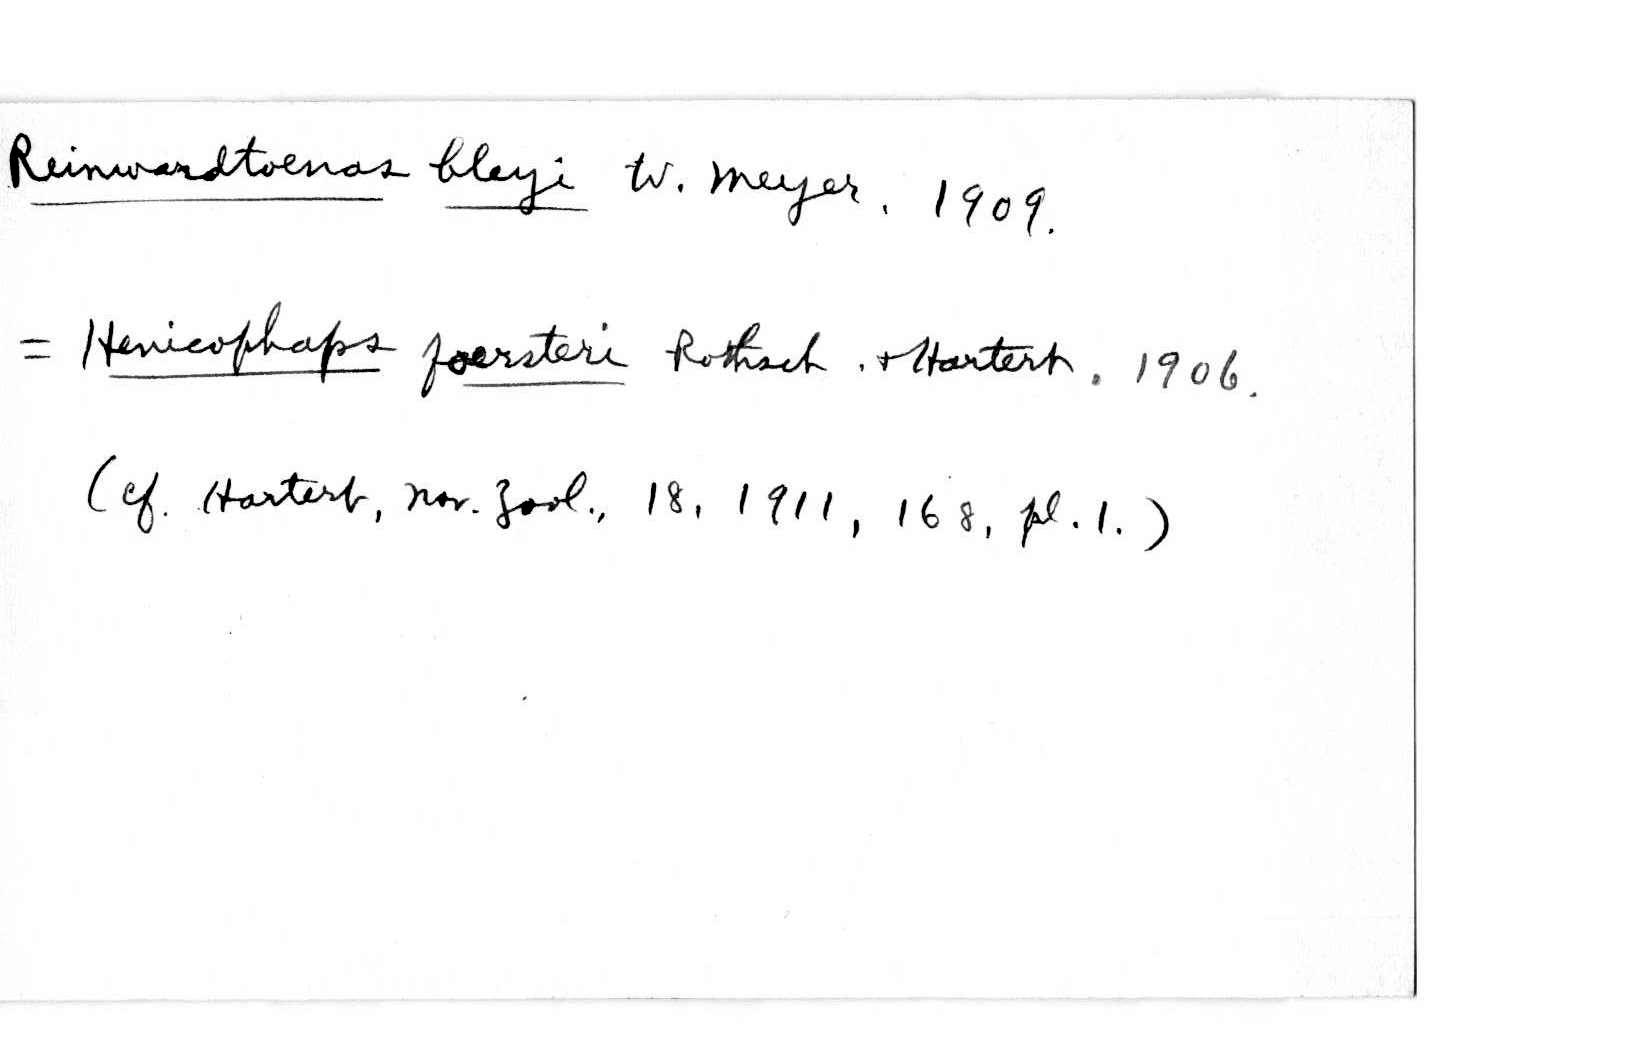 Reinwardtoenas bleyi W. Meyer. 1909.
= Henicophaps foersteri Rothsch. + Hartert. 1906.
(cf. Hartert, Nov. Zool., 18, 1911, 168, pl. 1.)